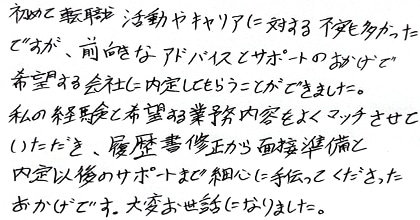 初めて転職活動やキャリアに対する不安も多かった
ですが、前向きなアドバイスとサポートのおかげで
希望する会社に内定してもらうことができました。
私の経験と希望する業務内容をよくマッチさせて
いただき、履歴書修正から面接準備と
内定以後のサポートまで細心に手伝ってくださった
おかげです。大変お世話になりました。